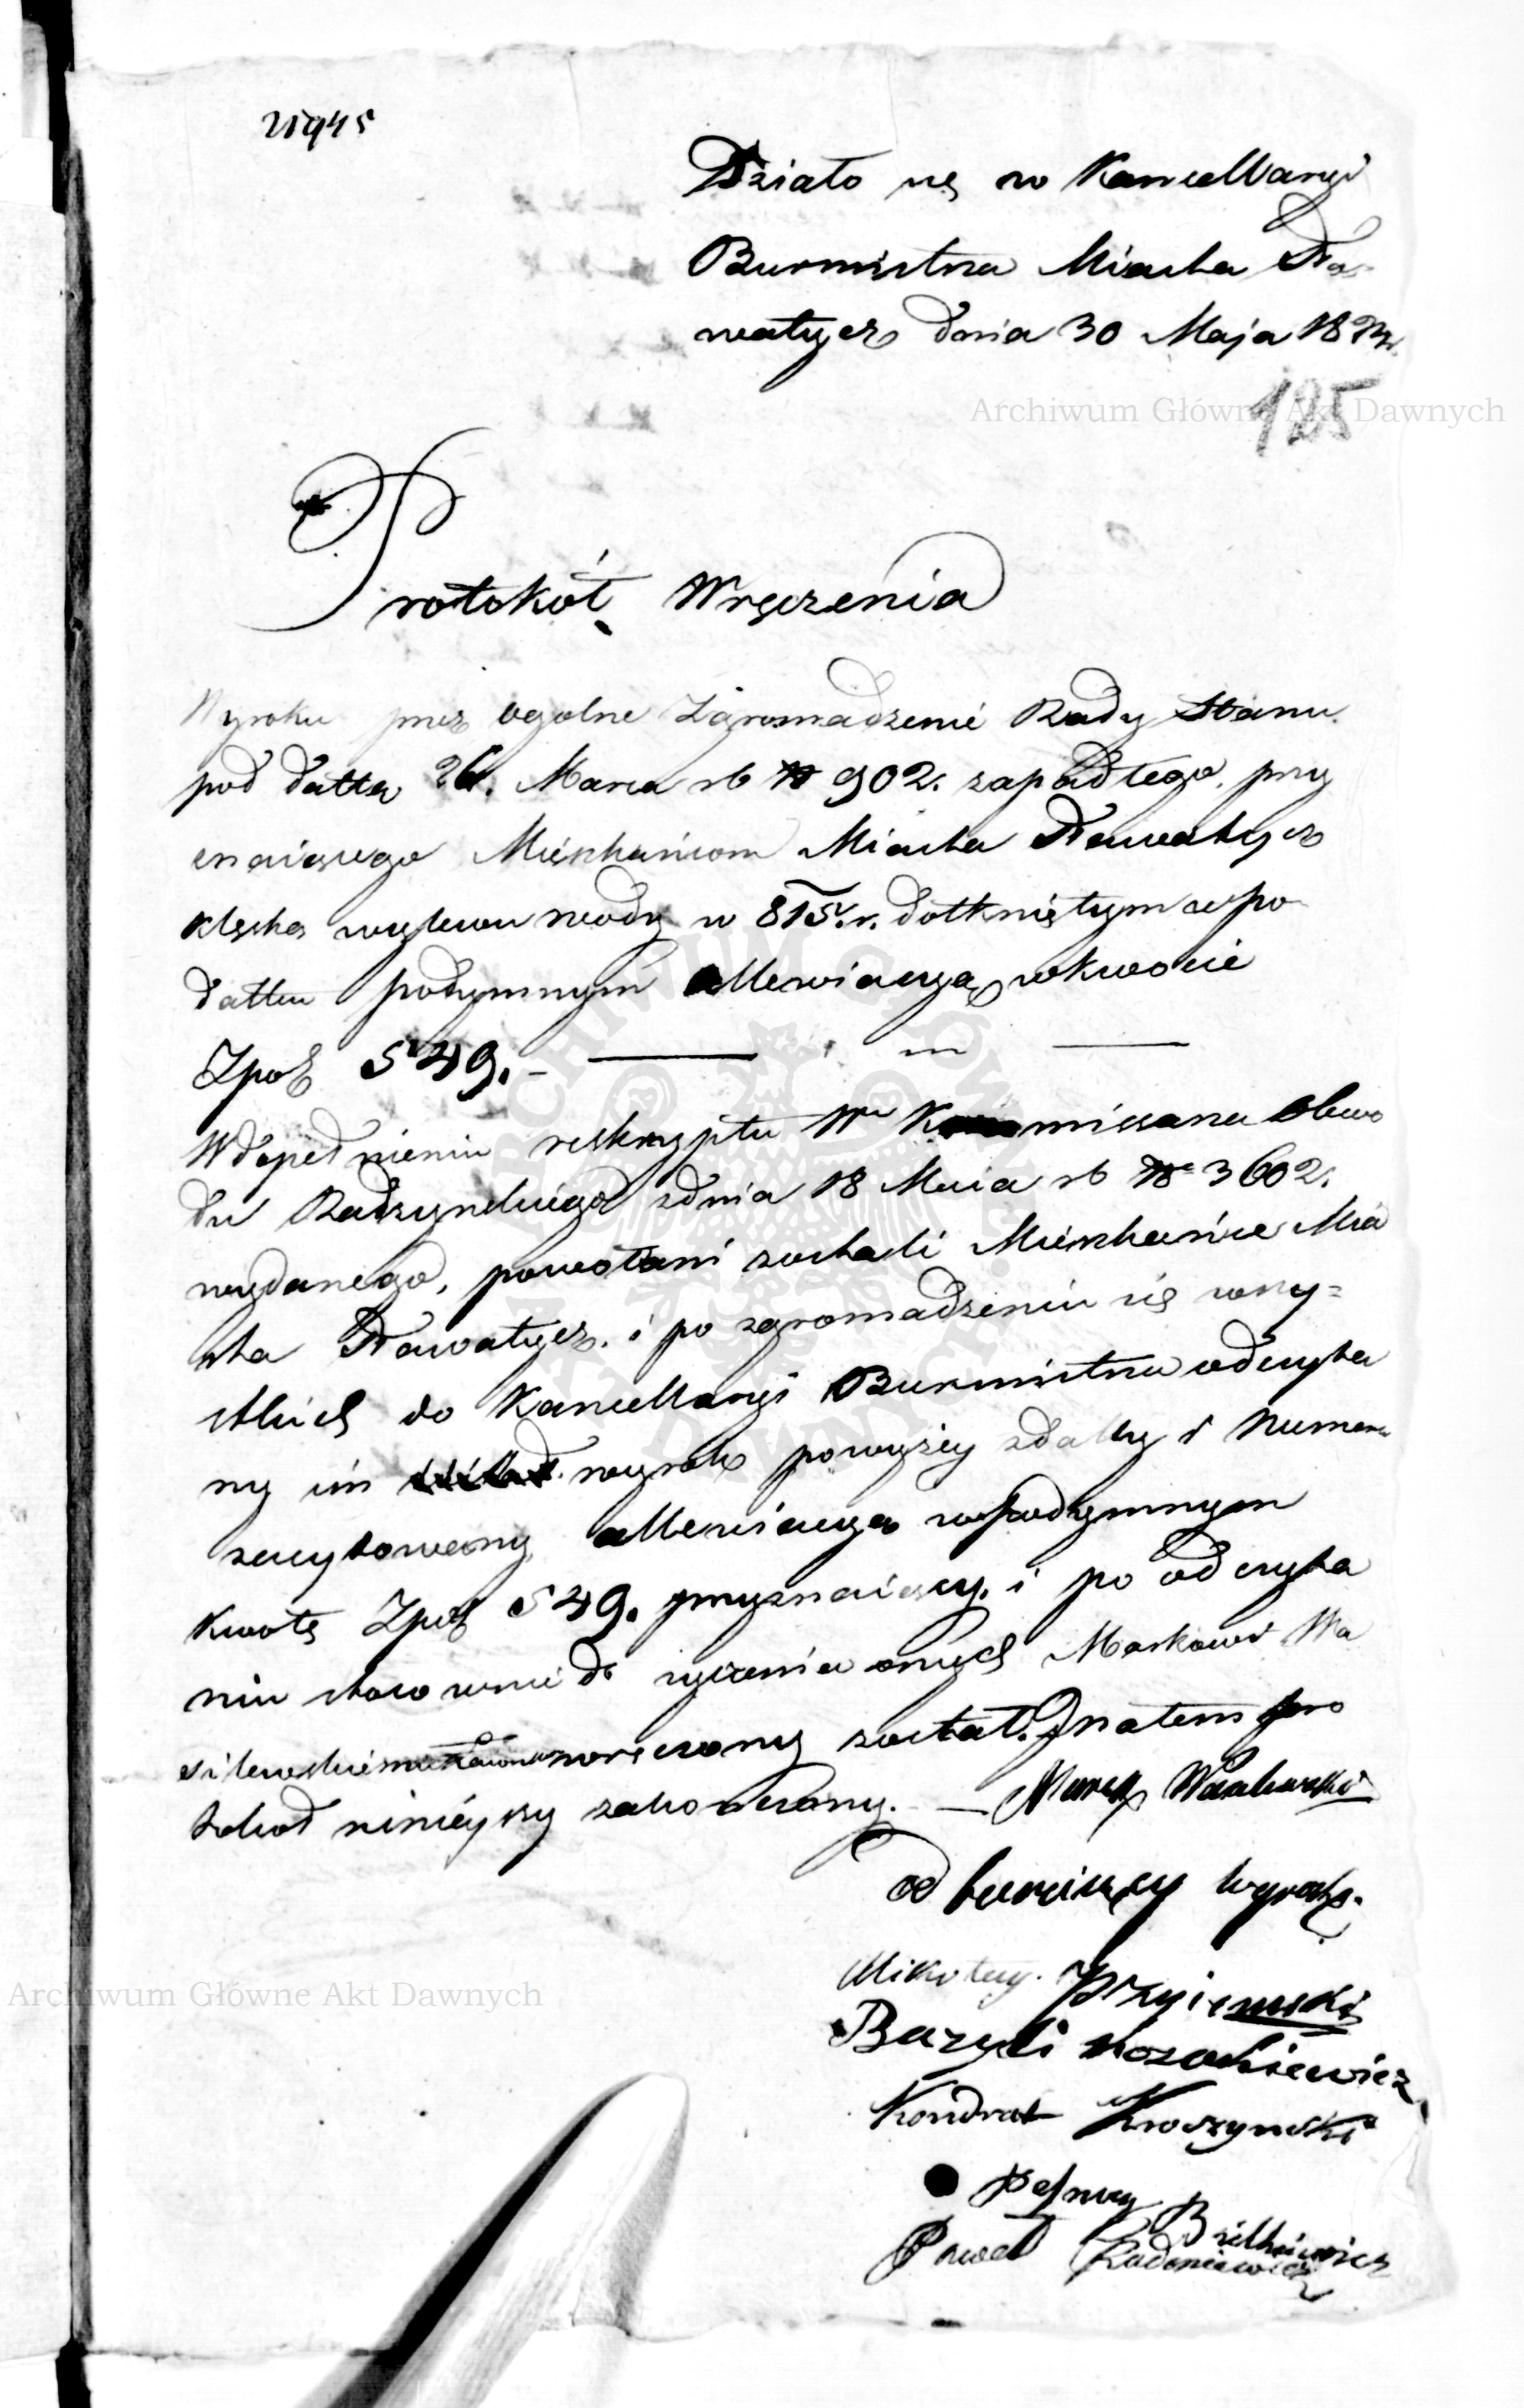 21945
Działo się w Kancellaryi
Burmistrza Miasta Sła-
watycz dnia 30 Maja 182
125
Archiwum Główne Akt Dawnych
Protokół Wręczenia
Wyroku przez ogolne Zgromadzenie Rady Stanu
pod dattą 26. Marca rb N 902. zapadłego, przy
znaiącego Mieszkańcom Miasta Sławatycz
klęską wylewu wody w 815. r. dotkniętym w po
datku podymnym allewiacyą w kwocie
Zpol 549.-
W dopełnieniu reskryptu W Kommissarza Obwo
du Radzyńskiego z dnia 18 Maia rb N 3602.
wydanego, powołani zostali Mieszkańce Mia
sta Sławatycz. i po zgromadzeniu się wszy=
stkich do Kancellaryi Burmistrza odczyta
ny im wyrok powyżey z datty i Numeru
zacytowany allewiacyą w podymnym
kwotę Zpol 549. przyznaiący. i po odczyta
niu stosownie do życzenia onych Markowi Wa
silewskiemu wręczony został. Na tem pro
tokoł ninieyszy zakończony. — Marek Wasilewski
odbieraiący wyrok.
Mikołay Przyiemski
Bazyli Kozakiewicz
Kondrat Kroszynski
Paweł Radoniewicz
Archiwum Główne Akt Dawnych
ARCHIWUM GŁÓWNE AKT DAWNYCH